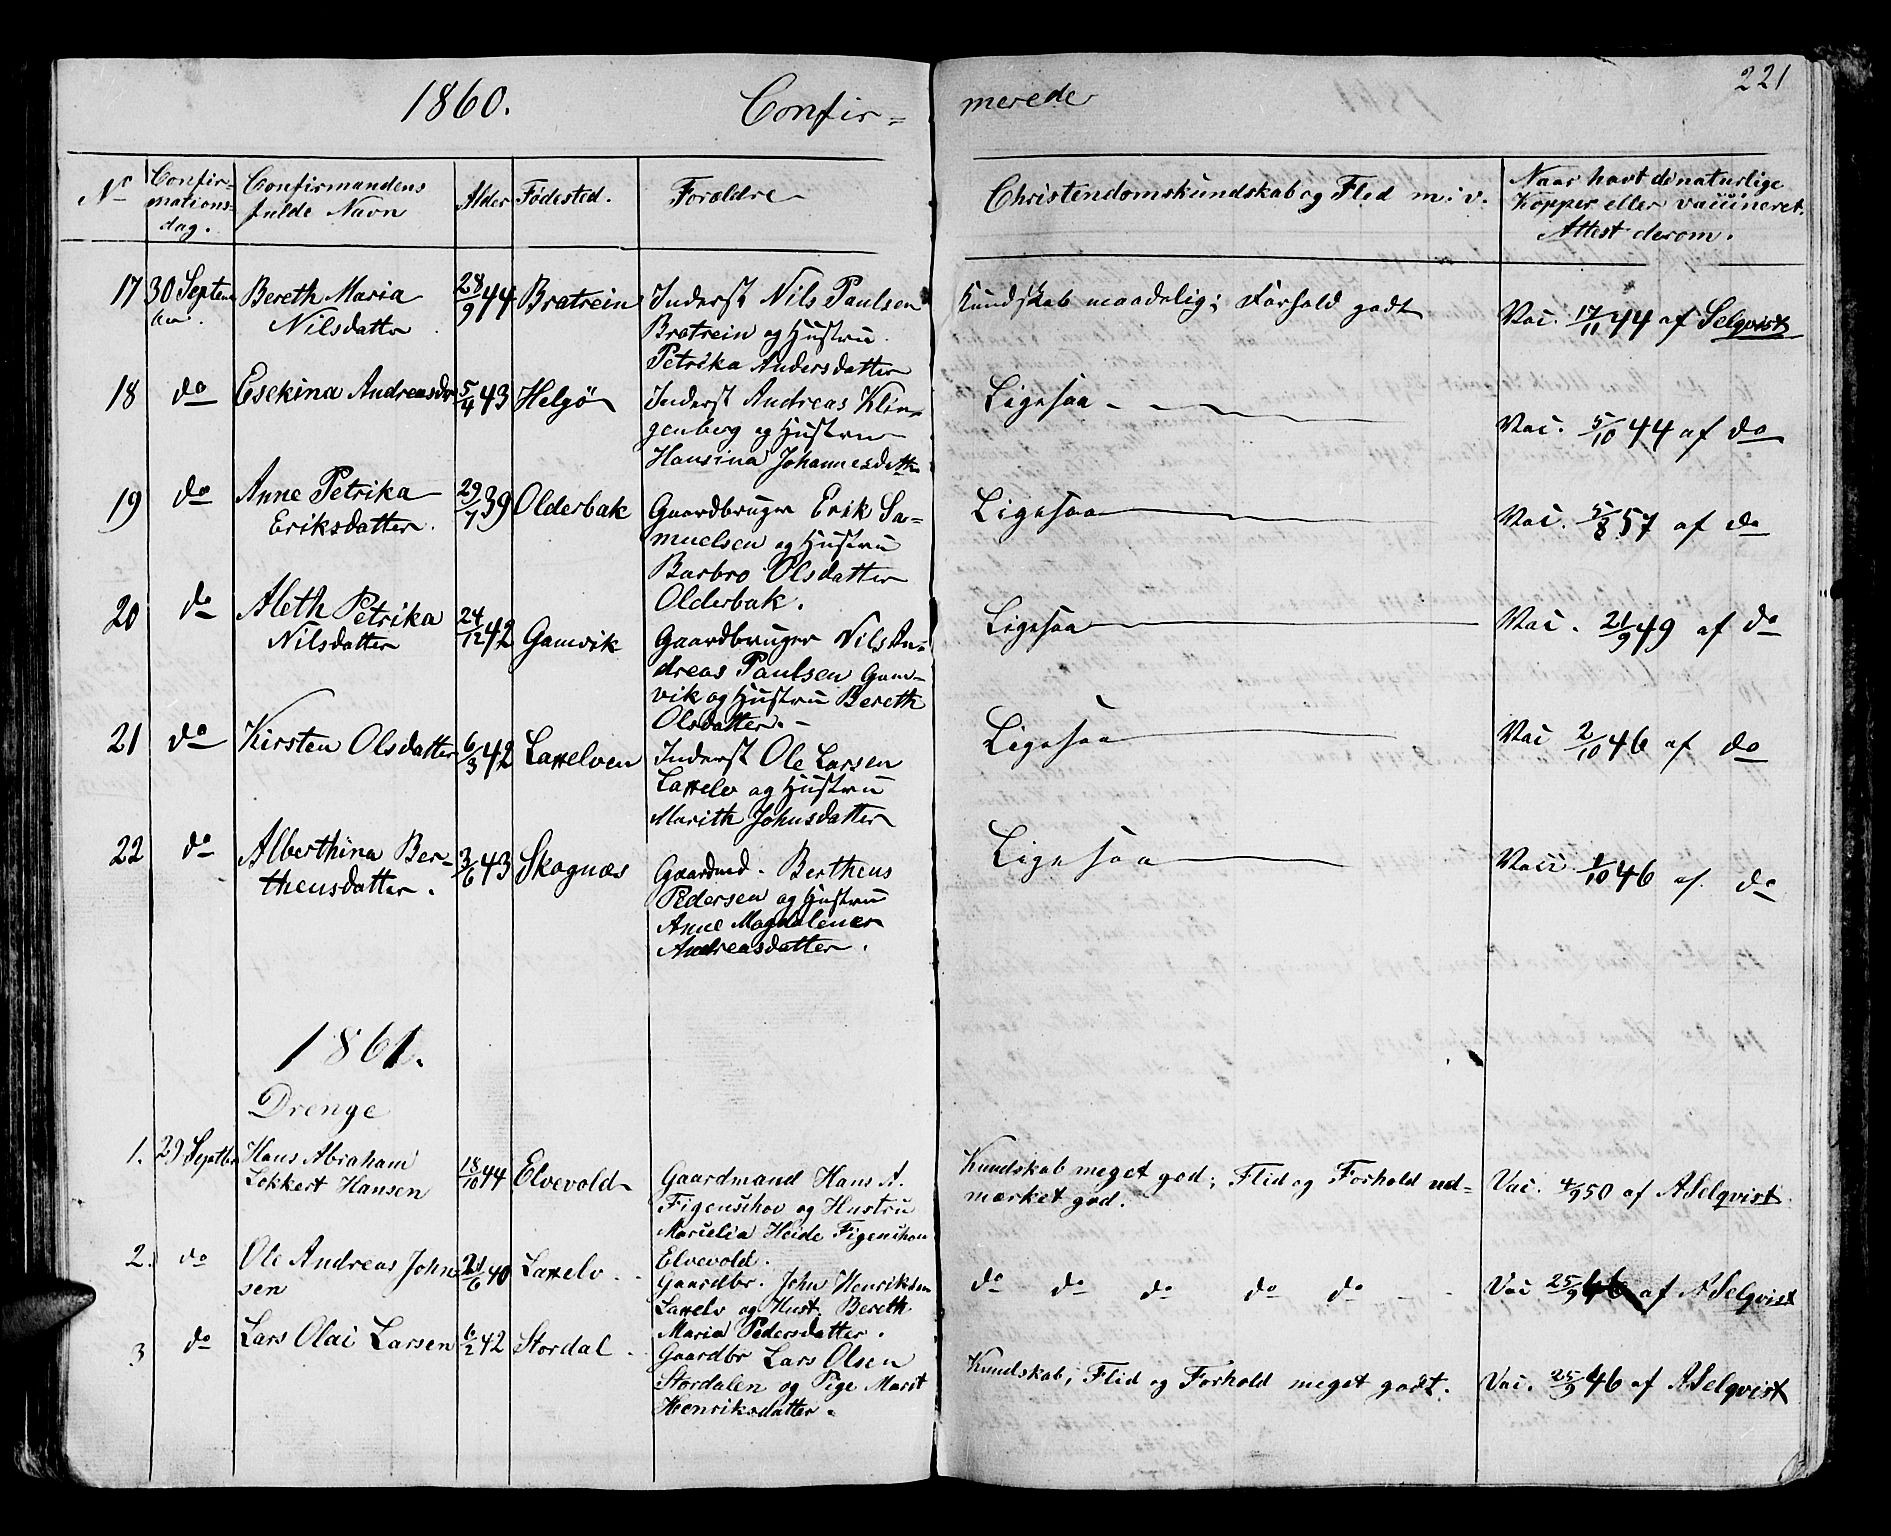 221
1860. Confir= merede
No
Confir=
mations=
dag.
Confirmandens
fulde Navn
Alder
Fødested.
Forældre
Christendomskundskab og Flid m. v.
Naar havt de naturlige
Kopper eller vaccineret.
Attest derom.
17 30 Septem
ber.
Bereth Maria
Nilsdatter
28/9 44 Bratrein
Inderst Nils Paulsen
Bratrein og Hustru
Petrika Andersdatter
Kundskab maadelig; Forhold godt
Vac. 17/11 44 af Selqvist
18 do Esekina Andreasdr 5/4 43 Helgö
Inderst Andreas Klin=
genberg og Hustru
Hansina Johannesdatter
Ligesaa
Vac. 5/10 44 af do
19 do Anne Petrika
Eriksdatter.
29/7 39 Olderbak
Gaardbruger Erik Sa=
muelsen og Hustru
Barbro Olsdatter
Olderbak.
Ligesaa
Vac. 5/8 57 af do
20 do Aleth Petrika
Nilsdatter
24/12 42 Gamvik
Gaardbruger Nils An=
dreas Paulsen Gam=
vik og Hustru Bereth
Olsdatter.
Ligesaa
Vac. 21/9 49 af do
21 do Kirsten Olsdatter 6/3 42 Laxelven
Inderst Ole Larsen
Laxelv og Hustru
Marith Johnsdatter
Ligesaa
Vac 2/10 46 af do
22 do Alberthina Ber=
theusdatter.
3/6 43 Skognæs
Gaardmd. Bertheus
Pedersen og Hustru
Anne Magdalene
Andreasdatter.
Ligesaa
Vacc 1/10 46 af. do
1861.
Drenge
1. 29 Septbr
Hans Abraham
Lokkert Hansen
18/10 44 Elvevold
Gaardmand Hans A.
Figenschov og Hustru
Marielia Heide Figenschou
Elvevold.
Kundskab meget god; Flid og Forhold ud=
mærket god.
Vac. 4/9 50 af A Selqvist
2. do Ole Andreas John
sen
21/6 40 Laxelv
Gaardbr. John Henriksen
Laxelv og Hust. Bereth
Maria Pedersdatter.
do do do do do
Vac 25/9 46 af A Selqvist
3 do Lars Olai Larsen 6/2 42 Stordal
Gaardbr Lars Olsen
Stordalen og Pige Marit
Henriksdatter.
Kundskab, Flid og Forhold meget godt.
Vac. 25/9 46 af A Selqvist